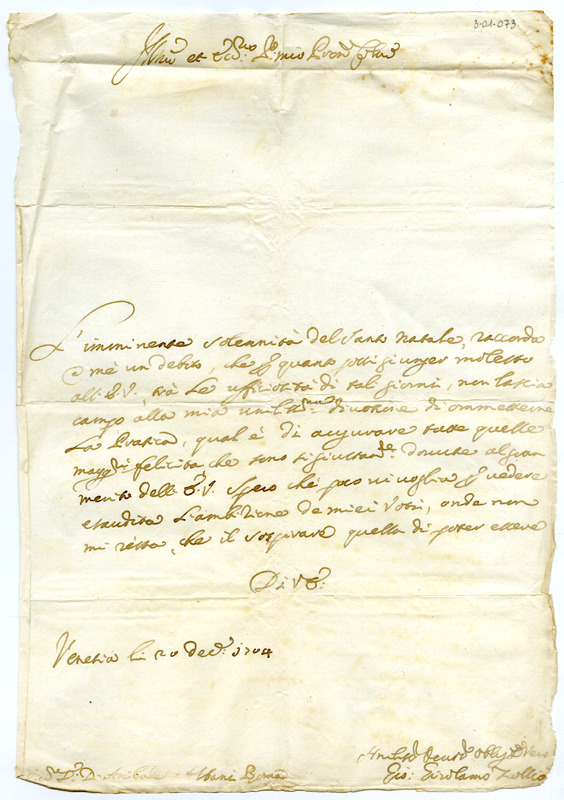 3-01-073
Illmo et Ecc.mo Sig.r mio Pron Col.mo
L'imminente solennità del Santo Natale, raccorda
à mè un debito, che p quanto possi giunger molesto
all' E. V., trà le ufficiosità di tali giorni, non lascia
campo alla mia umiliss.ma divotione di ommetterne
La Pratica, qual è di augurare tutte quelle
magg.ri felicità che sono si giustam.te dovute al gran
merito dell' E. V. Spero che poco vi voglia p vedere
esaudita L'ambitione de miei Voti, onde non
mi resta, che il sospirare quella di poter essere
Di V. E.
Venetia li 20 Dec.e 1704
Humiliss. Deuot. Oblig. Vero
D. Anibale Albani Roma
Gio: Girolamo Zollio